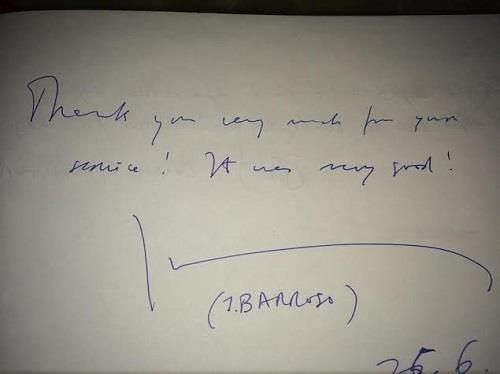 Thank you very much for your
service! It was very good!
(J.BARROSO)
25.6.